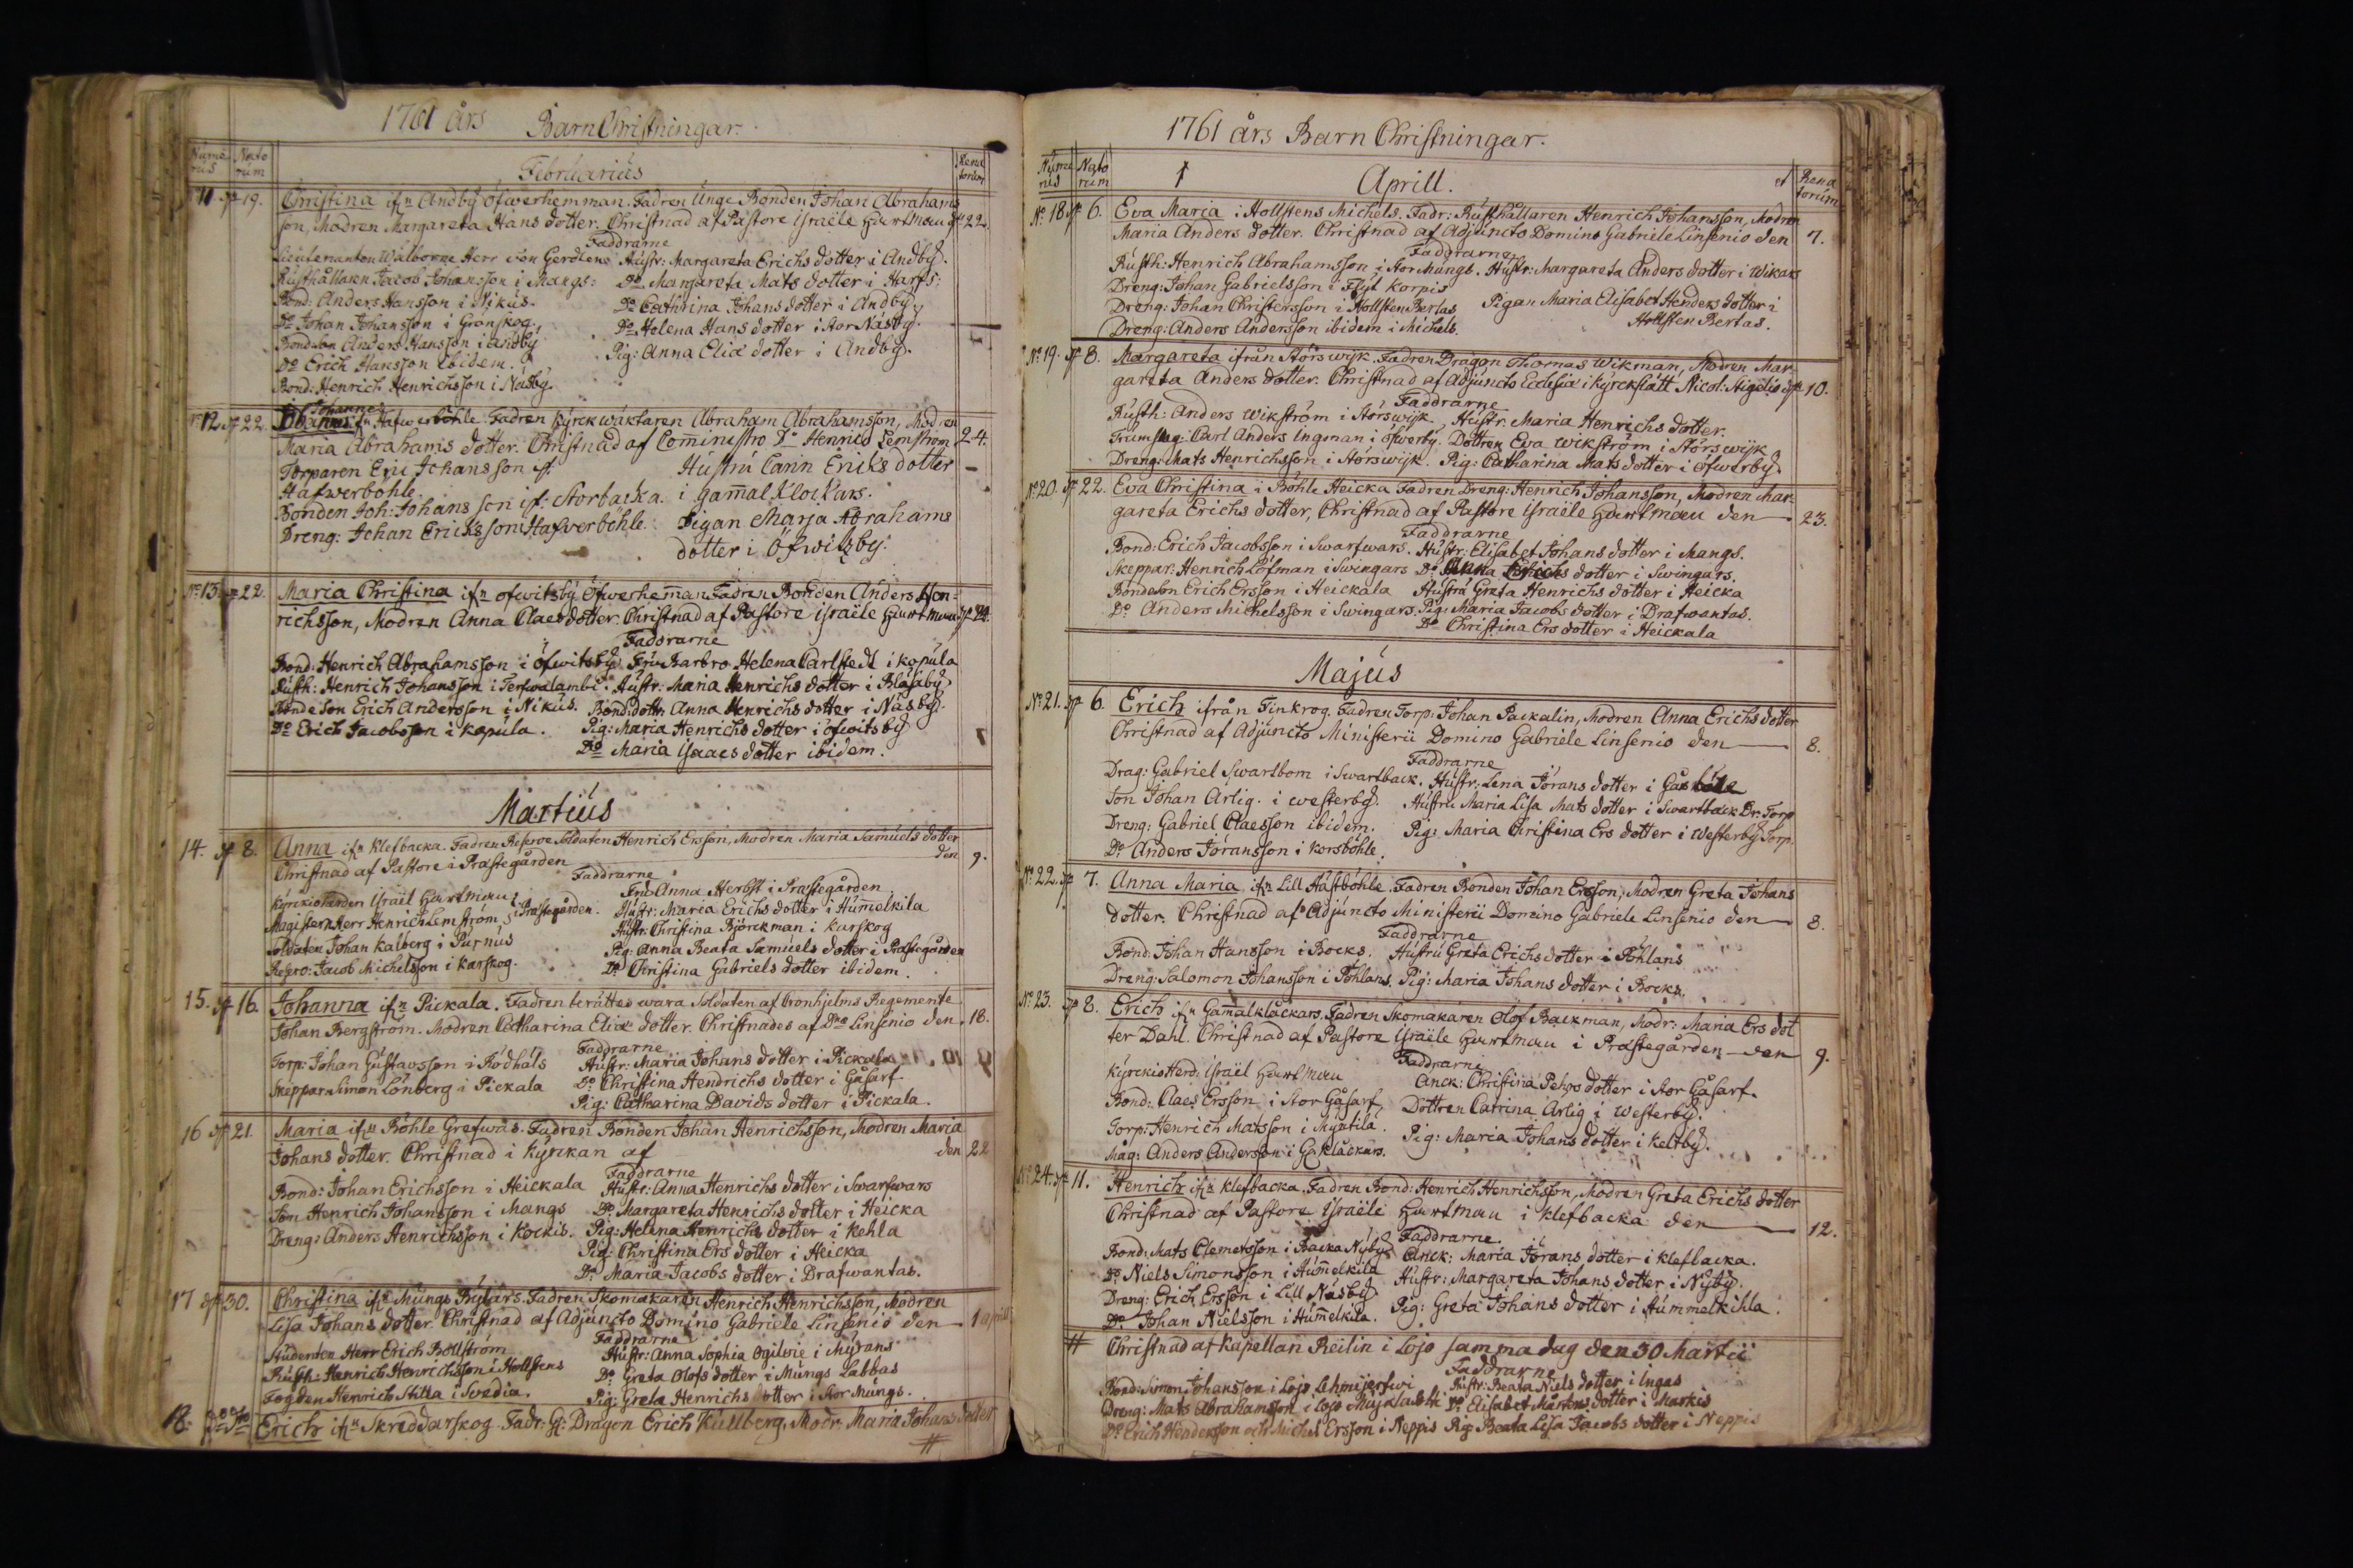 1761 års Barn Christningar.
Nume rus Nato rum Februarius Rena torum
11. 19. Christina ifn Andby öfwerhemman. Fadren Unge Bonden Johan Abrahams
son, Modren Margareta Hans dotter. Christnad af Pastore Israële Hartman 22.
Faddrarne
Lieutenanten Wälborne Herr von Hustr: Margareta Erichs dotter i Andby.
Rusthållaren Jacob Johansson i Mangs: Do Margareta Mats dotter i Harfs:
Bond: Anders Hansson i Nikus. Do Cathrina Johans dotter i Andby
Do Johan Johansson i Granskog. Do Helena Hans dotter i Stor
Bondeson Anders Hansson i Andby Pig: Anna Eliæ dotter i Andby.
Do Erich Hansson ibidem.
Bond: Henrich Henrichsson i Näsby.
No 12. 22. Johannes ifn Hafwerböhle. Fadren Kyrckwäktaren Abraham Abrahamsson, Modren
Maria Abrahams dotter. Christnad af Cominestro Do Henrico Lemström 24.
Torparen Eric Johansson if. Hustru Carin Ericks dotter
Hafwerböhle. i gam̄al Klockars.
Bonden Joh: Johansson if. Storbacka. Pigan Marja Abrahams
Dreng: Johan Ericksson Hafwerböhle. dotter i Öfwitzby.
No 13. 22. Maria Christina ifn öfwitsby Öfwerhem̄an Fadren Bonden Anders Hen-
richsson, Modren Anna Claes dotter. Christnad af Pastore Israële Hartman 24.
Faddrarne
Bond: Henrich Abrahamsson i öfwitsby Fru Barbro Helena Carlstedt i kopula
Rusth: Henrich Johansson i Terfwalambi. Hustr: Maria Henrichs dotter i Bläsaby
Bondeson Erich Andersson i Nikus. Bond: dottr Anna Henrichs dotter i Näsby.
Do Erich Jacobsson i kopula. Pig: Maria Henrichs dotter i öfwitsby
Do Maria Isaacs dotter ibidem.
Martius
14. 8. Anna ifn Klefbacka. Fadren Reserve Soldaten Henrich Ersson, Modren Maria Samuels dotter
Christnad af Pastore i Prästegården den 9.
Faddrarne
Kyrckioherden Israël Hartman Fru Anna Herbst i Prästegården
Magistern Herr Henrich Lemström i Prästegården. Hustr: Maria Erichs dotter i Hum̄elkila
Soldaten Johan Kalberg i Purnus Hustr: Christina Björckman i karskog
Reserv: Jacob Michelsson i karskog. Pig: Anna Beata Samuels dotter i Prästegården
Do Christina Gabriels dotter ibidem.
15. 16. Johanna ifn Pickala. Fadren berättes wara Soldaten af Cronhjelms Regemente
Johan Bergström. Modren Catharina Eliæ dotter. Christnades af Dno Linsenio den 18.
Faddrarne
Torp: Johan Gustavsson i Rödhals Hustr: Maria Johans dotter i Pickala
Skepparn Simon Lönberg i Pickala Do Christina Hendrichs dotter i Gåsarf
Pig: Catharina Davids dotter i Pickala.
16 21. Maria ifn Böhle Grefwas. Fadren Bonden Johan Henrichsson, Modren Maria
Johans dotter. Christnad i kyrckan af den 22
Faddrarne
Bond: Johan Erichsson i Heickala Hustr: Anna Henrichs dotter i Swarfwars
Son Henrich Johansson i Mangs Do Margareta Henrichs dotter i Heicka
Dreng: Anders Henrichsson i Kockis. Pig: Helena Henrichs dotter i Kehla
Pig: Christina Ers dotter i Heicka
Do Maria Jacobs dotter i Drafwantas.
17 30. Christina ifn Mungs Fadren Skomakaren Henrich Henrichsson, Modren
Lisa Johans dotter. Christnad af Adjuncto Domino Gabriele Linsenio den 1 april
Faddrarne
Studenten Herr Erich Bollström Hustr: Anna Sophia Ogilwie i Myrans
Rusth: Henrich Henrichsson i Hollstens Do Greta Olofs dotter i Mungs Labbas
Fogden Henrich Stitta i Svedia. Pig: Greta Henrichs dotter i Stor Mungs.
18. Erich ifn Skreddarskog. Fadr: Dragon Erich Kullberg, Modr: Maria Johans dotter
#
1761 års Barn Christningar.
Nume rus Nato rum Aprill. Rena torum
No 18. 6. Eva Maria i Hollstens Michels. Fadr: Rusthållaren Henrich Johansson, Modren
Maria Anders dotter. Christnad af Adjuncto Domino Gabriele Linsenio den 7.
Faddrarne
Rusth: Henrich Abrahamsson i Stor Mungs. Hustr: Margareta Anders dotter i Wikars
Dreng: Johan Gabrielsson i Flyt Korpis
Dreng: Johan Christersson i Hollsten Bertas Pigan Maria Elisabet Henders dotter i
Dreng: Anders Andersson ibidem i Michels. Hollsten Bertas.
No 19. 8. Margareta ifrån Störswijk. Fadren Dragon Thomas Wikman, Modren Mar-
gareta Anders dotter. Christnad af Adjuncto Ecclesiæ i Kyrckslätt Nicol: Aigelio 10.
Faddrarne
Rusth: Anders Wikström i Störswijk Hustr: Maria Henrichs dotter.
Trumslag: Carl Anders Ingman i öfwerby. Dottren Eva Wikström i Störswijk
Dreng: Mats Henrichsson i Störswijk. Pig: Catharina Mats dotter i öfwerby
No 20. 22. Eva Christina i Böhle Heicka Fadren Dreng: Henrich Johansson, Modren Mar-
gareta Erichs dotter, Christnad af Pastore Israële Hartman den 23.
Faddrarne
Bond: Erich Jacobsson i Swarfwars. Hustr: Elisabet Johans dotter i Mangs.
Skeppar: Henrich Löfman i Swingars Do Anna Erichs dotter i Swingars.
Bondeson Erich Ersson i Heickala Hustru Greta Henrichs dotter i Heicka
Do Anders Michelsson i Swingars. Pig: Maria Jacobs dotter i Drafwantas.
Do Christina Ers dotter i Heickala
Majus
No 21. 6. Erich ifrån Finkrog. Fadren Torp: Johan Packalin, Modren Anna Erichs dotter
Christnad af Adjuncto Ministerii Domino Gabriele Linsenio den 8.
Faddrarne
Drag: Gabriel Swartbom i Swartback. Hustr: Lena Jörans dotter i
Son Johan Arlig. i westerby. Hustru Maria Lisa Mats dotter i Swartback Dr: Torp
Dreng: Gabriel Claesson ibidem. Pig: Maria Christina Ers dotter i Westerby Torp.
Do Anders Jöransson i korsböhle.
No 22. 7. Anna Maria ifn Lill Hästböhle. Fadren Bonden Johan Ersson, Modren Greta Johans
dotter. Christnad af Adjuncto Ministerii Domino Gabriele Linsenio den 8.
Faddrarne
Bond: Johan Hansson i Bocks. Hustru Greta Erichs dotter i Pöhlans
Dreng: Salomon Johansson i Pöhlans. Pig: Maria Johans dotter i Bocks.
No 23. 8. Erich ifn Gam̄alklåckars. Fadren Skomakaren Olof Backman, Modr: Maria Ers dot
ter Dahl. Christnad af Pastore Israële Hartman i Prästegården den 9.
Faddrarne
Kyrckioherd: Israël Hartman Anck: Christina Pehrs dotter i Stor Gåsarf.
Bond: Claes Ersson i Stor Gåsarf Dottren Catrina Arlig i Westerby.
Torp: Henrich Matsson i Myntilä. Pig: Maria Johans dotter i Keltby.
Måg: Anders Andersson i Ga: klåckars.
No 24. 11. Henrich ifn klefbacka. Fadren Bond: Henrich Henrichsson, Modren Greta Erichs dotter
Christnad af Pastore Israële Hartman i klefbacka den 12.
Faddrarne.
Bond: Mats Clemetsson i Backa Nyby Anck: Maria Jörans dotter i klefbacka.
Do Niels Simonsson i Hum̄elkila Hustr: Margareta Johans dotter i Nyby.
Dreng: Erich Ersson i Lill Näsby Pig: Greta Johans dotter i Hummelkihla.
Do Johan Nielsson i Hum̄elkila.
# Christnad af Kapellan Reilin i Lojo samma dag den 30 Martii
Faddrarne
Bond: Simon Johansson i Lojo Lehmijerfwi Hustr: Beata Niels dotter i Ingas
Dreng: Mats Abrahamsson i Lojo Do Elisabet Mårtens dotter i Markis
Do Erich Hendersson och Michel Ersson i Neppis Pig: Beata Lisa Jacobs dotter i Neppis